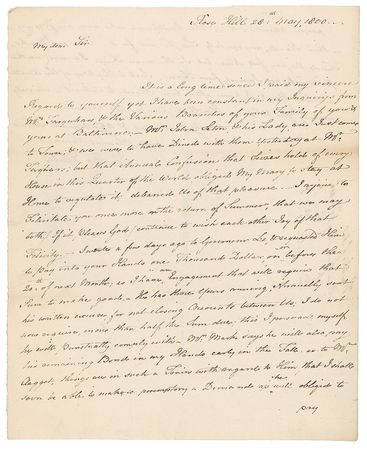 Rose Hill 28th May, 1800.
My dear Sir
It is a long time since I paid my sincere
Regards to yourself yet I have been constant in my Inquirys from
Mr. Farquhars, & the Various Branches of your Family of your
years at Baltimore — Mr. John & his Lady, are Just come
to Town, & we were to have Dined with them Yesterday at Mr.
but that Annual Confusion that Seizes hold of every
House in this Quarter of the World obliged My Mary to Stay at
Home to regulate it debarred Us of that pleasure — Injoy, to
Felicitate you once more on the return of Summer that we may
both, If it Pleases God, continue to wish each other Joy of that
Felicity — I wrote a few days ago to Governour Lee & requested Him
to pay into your Hands one Thousand Dollars on or before the
20th of next Month, as I have an Engagement that will require that
Sum to make good. He has three Years running Annually sent
his written excuses for not closing Accounts between Us, I do not
now require, more than half the Sum due, this I persuade myself
he will Punctually comply with — Mr. Mark says he will also pay
his remaining Bond in my Hands early in the Fall. as to Mr.
Clagget, things are in such a Train with regard to Him that I shall
soon be able to make a peremptory a Demand as he will obliged to
pay